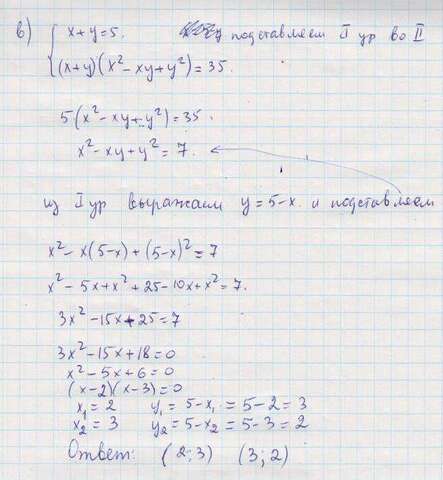 в) x+y=5. подставляем I ур во II
(x+y)(x²-xy+y²)=35.
5(x²-xy+y²)=35
x²-xy+y²=7.
из I ур выражаем y=5-x. и подставляем
x²-x(5-x)+(5-x)²=7
x²-5x+x²+25-10x+x²=7.
3x²-15x+25=7
3x²-15x+18=0
x²-5x+6=0
(x-2)(x-3)=0
x₁=2 y₁=5-x₁=5-2=3
x₂=3 y₂=5-x₂=5-3=2
Ответ: (2;3) (3;2)